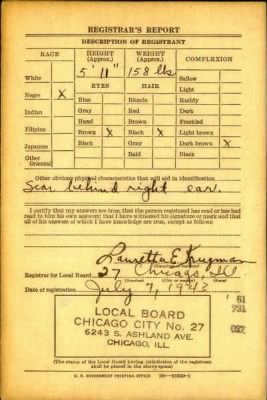 REGISTRAR'S REPORT
DESCRIPTION OF REGISTRANT
RACE HEIGHT (Approx.) WEIGHT (Approx.) COMPLEXION
5' 11" 158 lbs
White Sallow
EYES HAIR Light
Negro X Blue Blonde Ruddy
Indian Gray Red Dark
Hazel Brown Freckled
Filipino Brown X Black X Light brown
Japanese Black Gray Dark brown X
Other Oriental Bald Black
Other obvious physical characteristics that will aid in identification
Scar behind right ear.
I certify that my answers are true; that the person registered has read or has had
read to him his own answers; that I have witnessed his signature or mark and that
all of his answers of which I have knowledge are true, except as follows
Lauretta E.
Registrar for Local Board 27 Chicago, Ill
Date of registration July 7, 1943
LOCAL BOARD
CHICAGO CITY No. 27
6243 S. ASHLAND AVE.
CHICAGO, ILL.
61
(The stamp of the Local Board having jurisdiction of the registrant
shall be placed in the above space)
U. S. GOVERNMENT PRINTING OFFICE